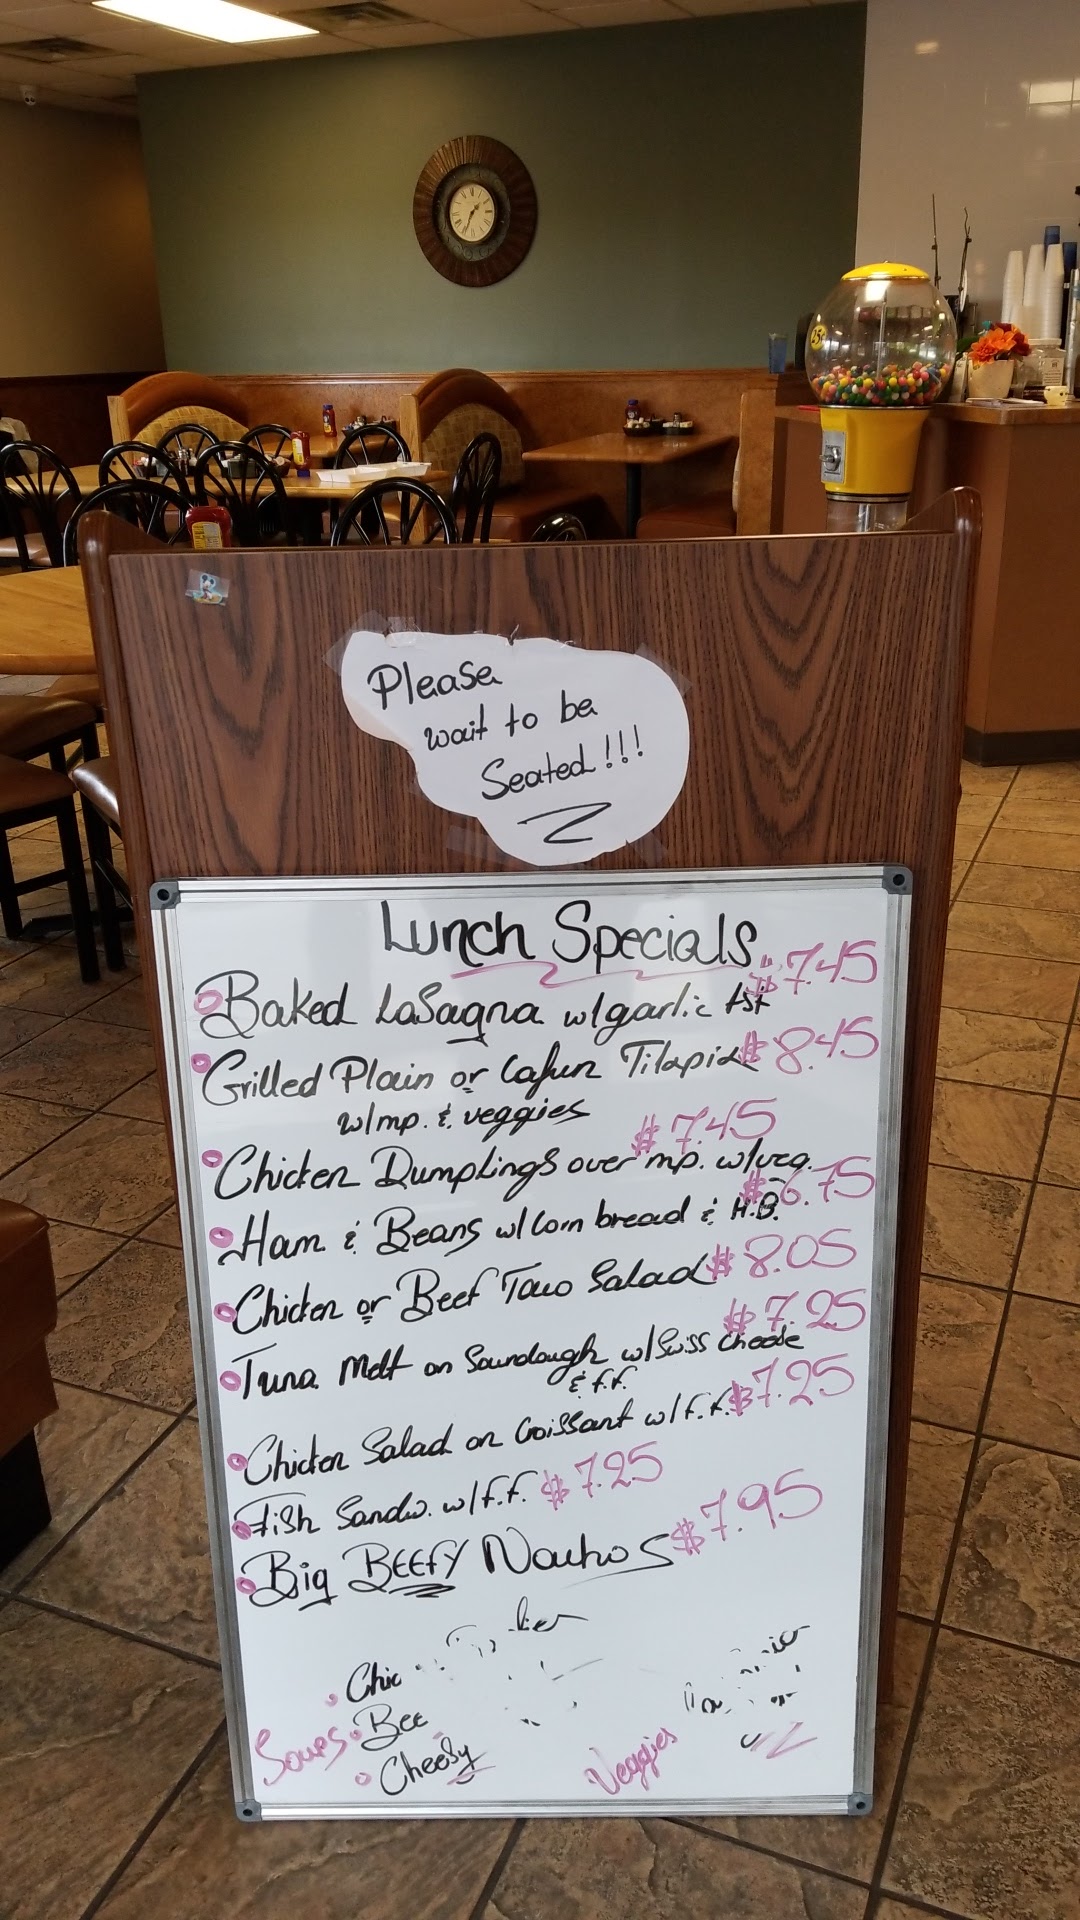 25¢
Please
wait to be
Seated!!!
Lunch Specials
Baked Lasagna w/garlic tst $7.45
Grilled Plain or Cajun Tilapia $8.45
w/mp. & veggies
Chicken Dumplings over mp. w/veg. $7.45
Ham & Beans w/Corn bread & H.B. $6.75
Chicken or Beef Taco Salad $8.05
Tuna Melt on Sourdough w/Swiss Cheese $7.25
& f.f.
Chicken Salad on Croissant w/f.f. $7.25
Fish Sandw. w/f.f. $7.25
Big BEEFY Nachos $7.95
Chic
Soups Bee
Cheesy
Veggies